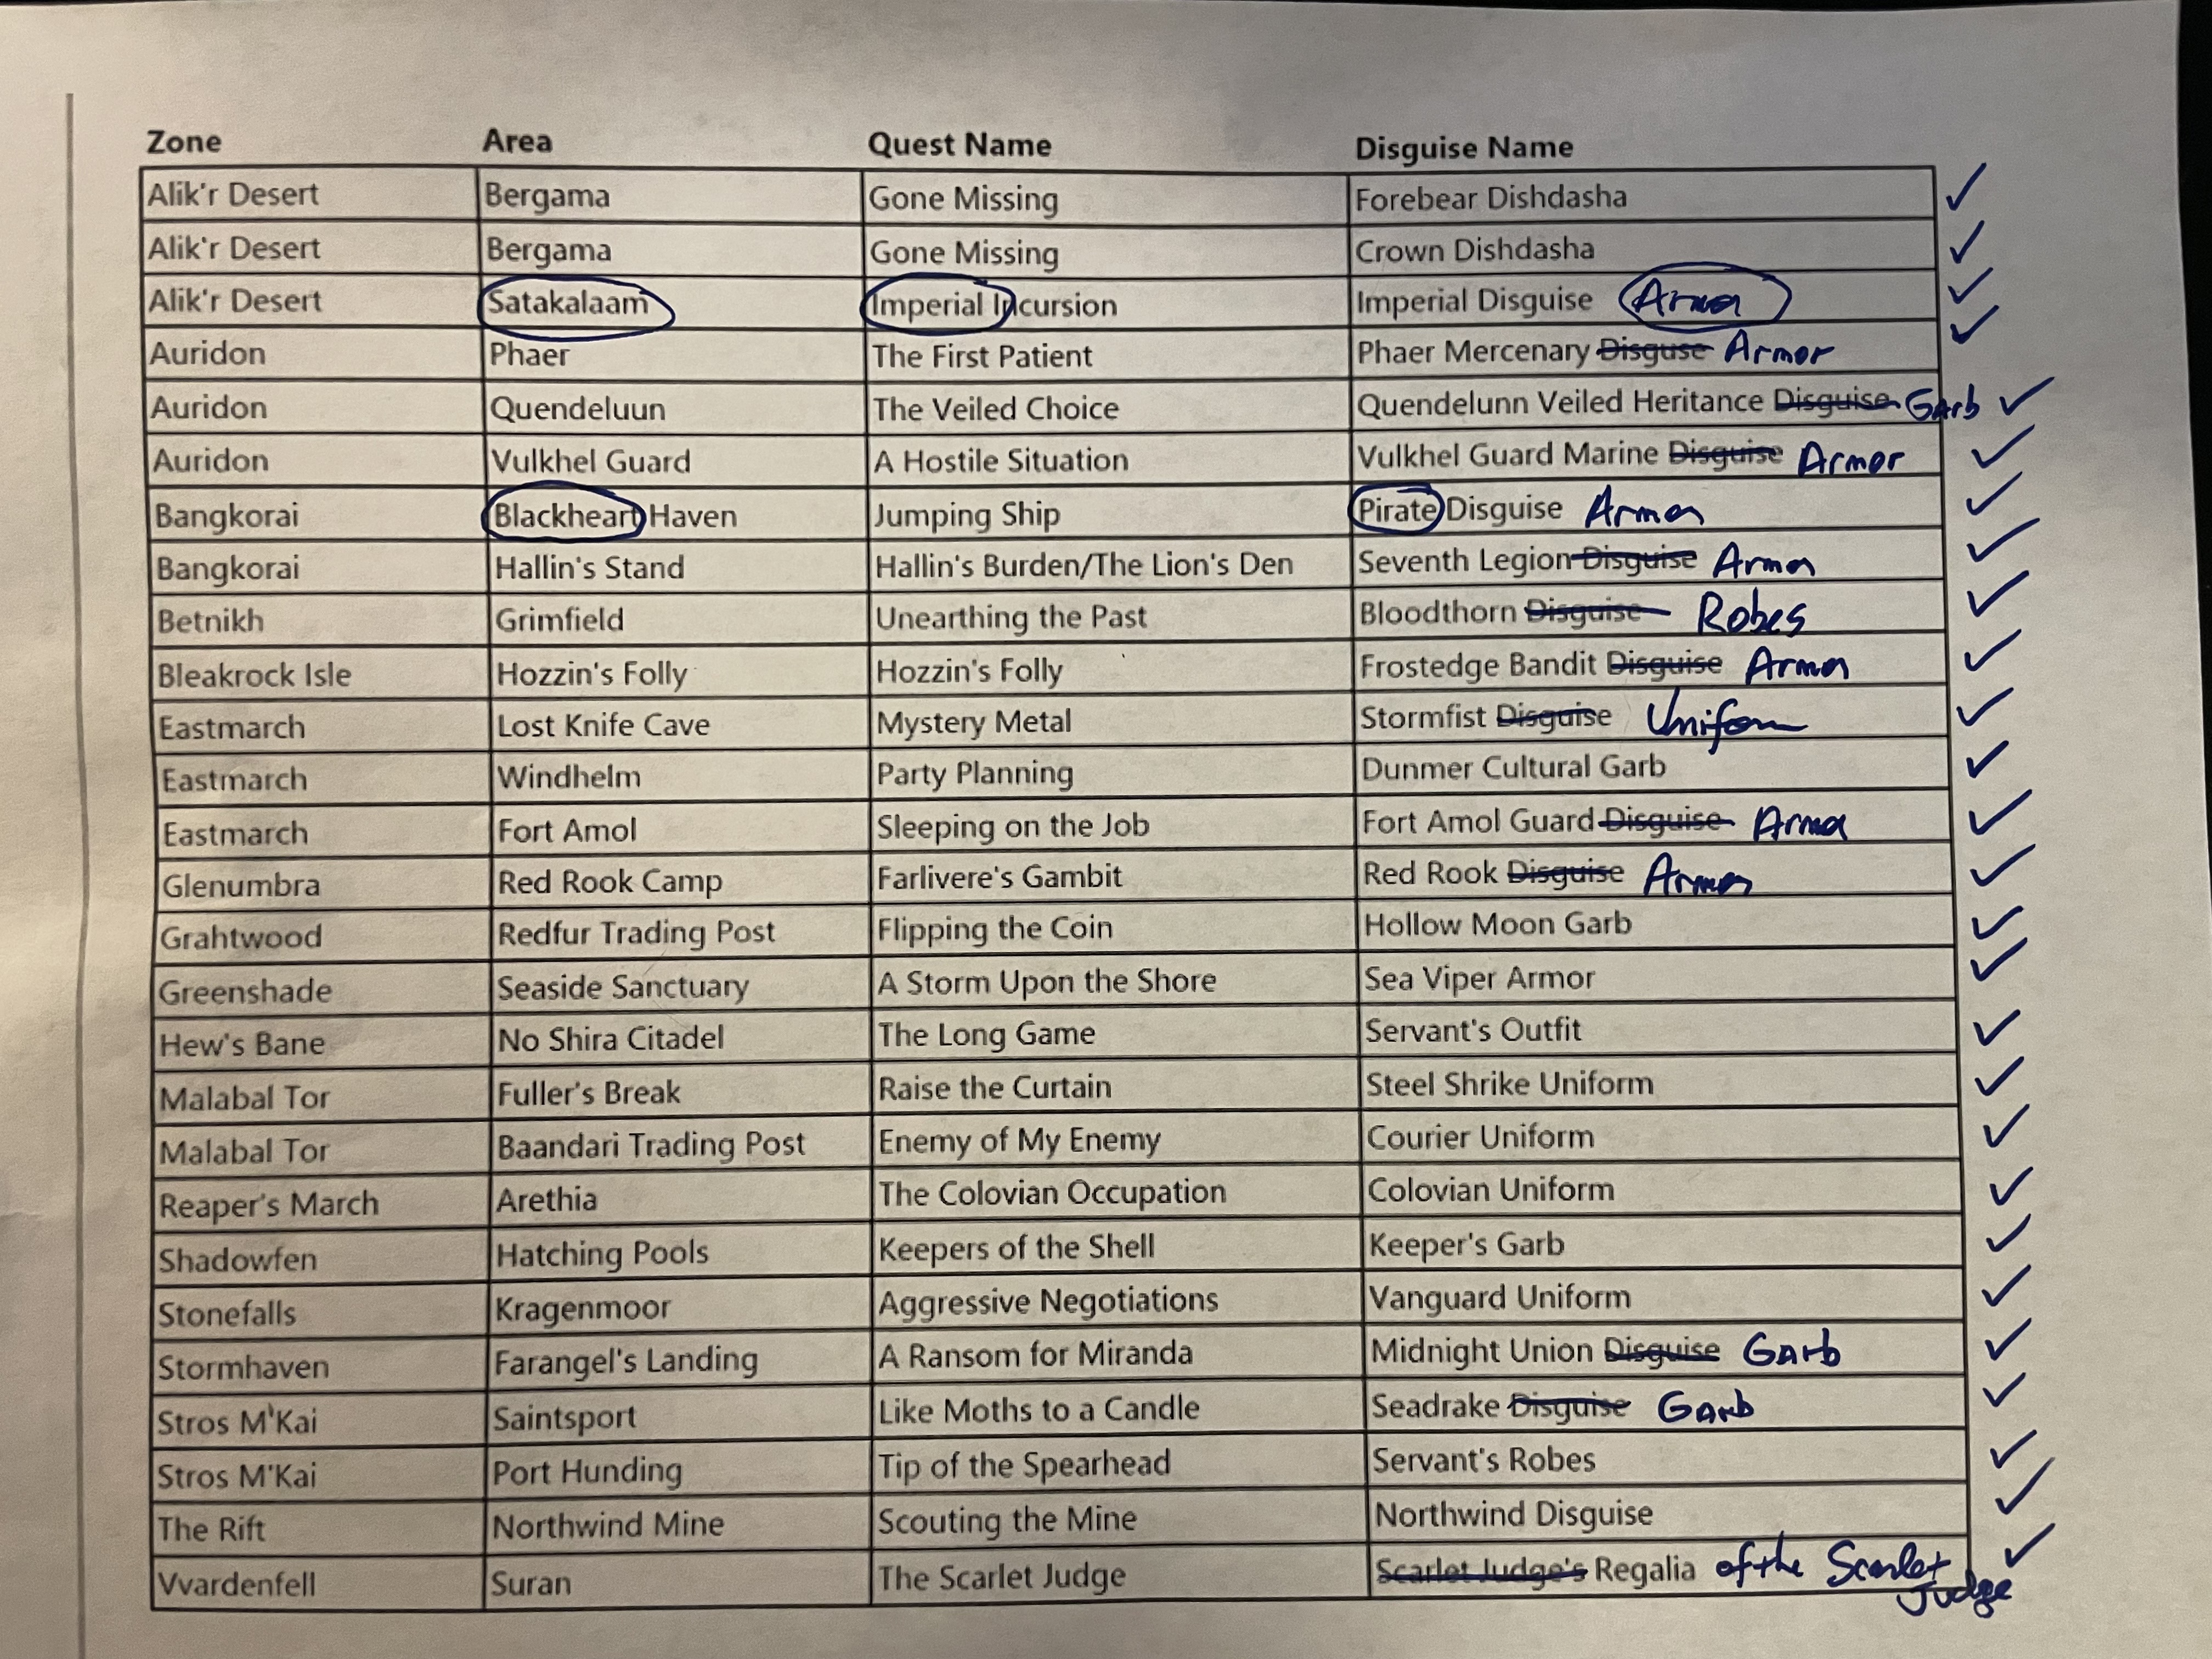 Zone Area Quest Name Disguise Name
Alik'r Desert Bergama Gone Missing Forebear Dishdasha ✓
Alik'r Desert Bergama Gone Missing Crown Dishdasha ✓
Alik'r Desert Satakalaam Imperial Incursion Imperial Disguise Armor ✓
Auridon Phaer The First Patient Phaer Mercenary Disguse Armor ✓
Auridon Quendeluun The Veiled Choice Quendelunn Veiled Heritance Disguise Garb ✓
Auridon Vulkhel Guard A Hostile Situation Vulkhel Guard Marine Disguise Armor ✓
Bangkorai Blackheart Haven Jumping Ship Pirate Disguise Armor ✓
Bangkorai Hallin's Stand Hallin's Burden/The Lion's Den Seventh Legion Disguise Armor ✓
Betnikh Grimfield Unearthing the Past Bloodthorn Disguise Robes ✓
Bleakrock Isle Hozzin's Folly Hozzin's Folly Frostedge Bandit Disguise Armor ✓
Eastmarch Lost Knife Cave Mystery Metal Stormfist Disguise Uniform ✓
Eastmarch Windhelm Party Planning Dunmer Cultural Garb ✓
Eastmarch Fort Amol Sleeping on the Job Fort Amol Guard Disguise Armor ✓
Glenumbra Red Rook Camp Farlivere's Gambit Red Rook Disguise Armor ✓
Grahtwood Redfur Trading Post Flipping the Coin Hollow Moon Garb ✓
Greenshade Seaside Sanctuary A Storm Upon the Shore Sea Viper Armor ✓
Hew's Bane No Shira Citadel The Long Game Servant's Outfit ✓
Malabal Tor Fuller's Break Raise the Curtain Steel Shrike Uniform ✓
Malabal Tor Baandari Trading Post Enemy of My Enemy Courier Uniform ✓
Reaper's March Arethia The Colovian Occupation Colovian Uniform ✓
Shadowfen Hatching Pools Keepers of the Shell Keeper's Garb ✓
Stonefalls Kragenmoor Aggressive Negotiations Vanguard Uniform ✓
Stormhaven Farangel's Landing A Ransom for Miranda Midnight Union Disguise Garb ✓
Stros M'Kai Saintsport Like Moths to a Candle Seadrake Disguise Garb ✓
Stros M'Kai Port Hunding Tip of the Spearhead Servant's Robes ✓
The Rift Northwind Mine Scouting the Mine Northwind Disguise ✓
Vvardenfell Suran The Scarlet Judge Scarlet Judge's Regalia of the Scarlet ✓
Judge